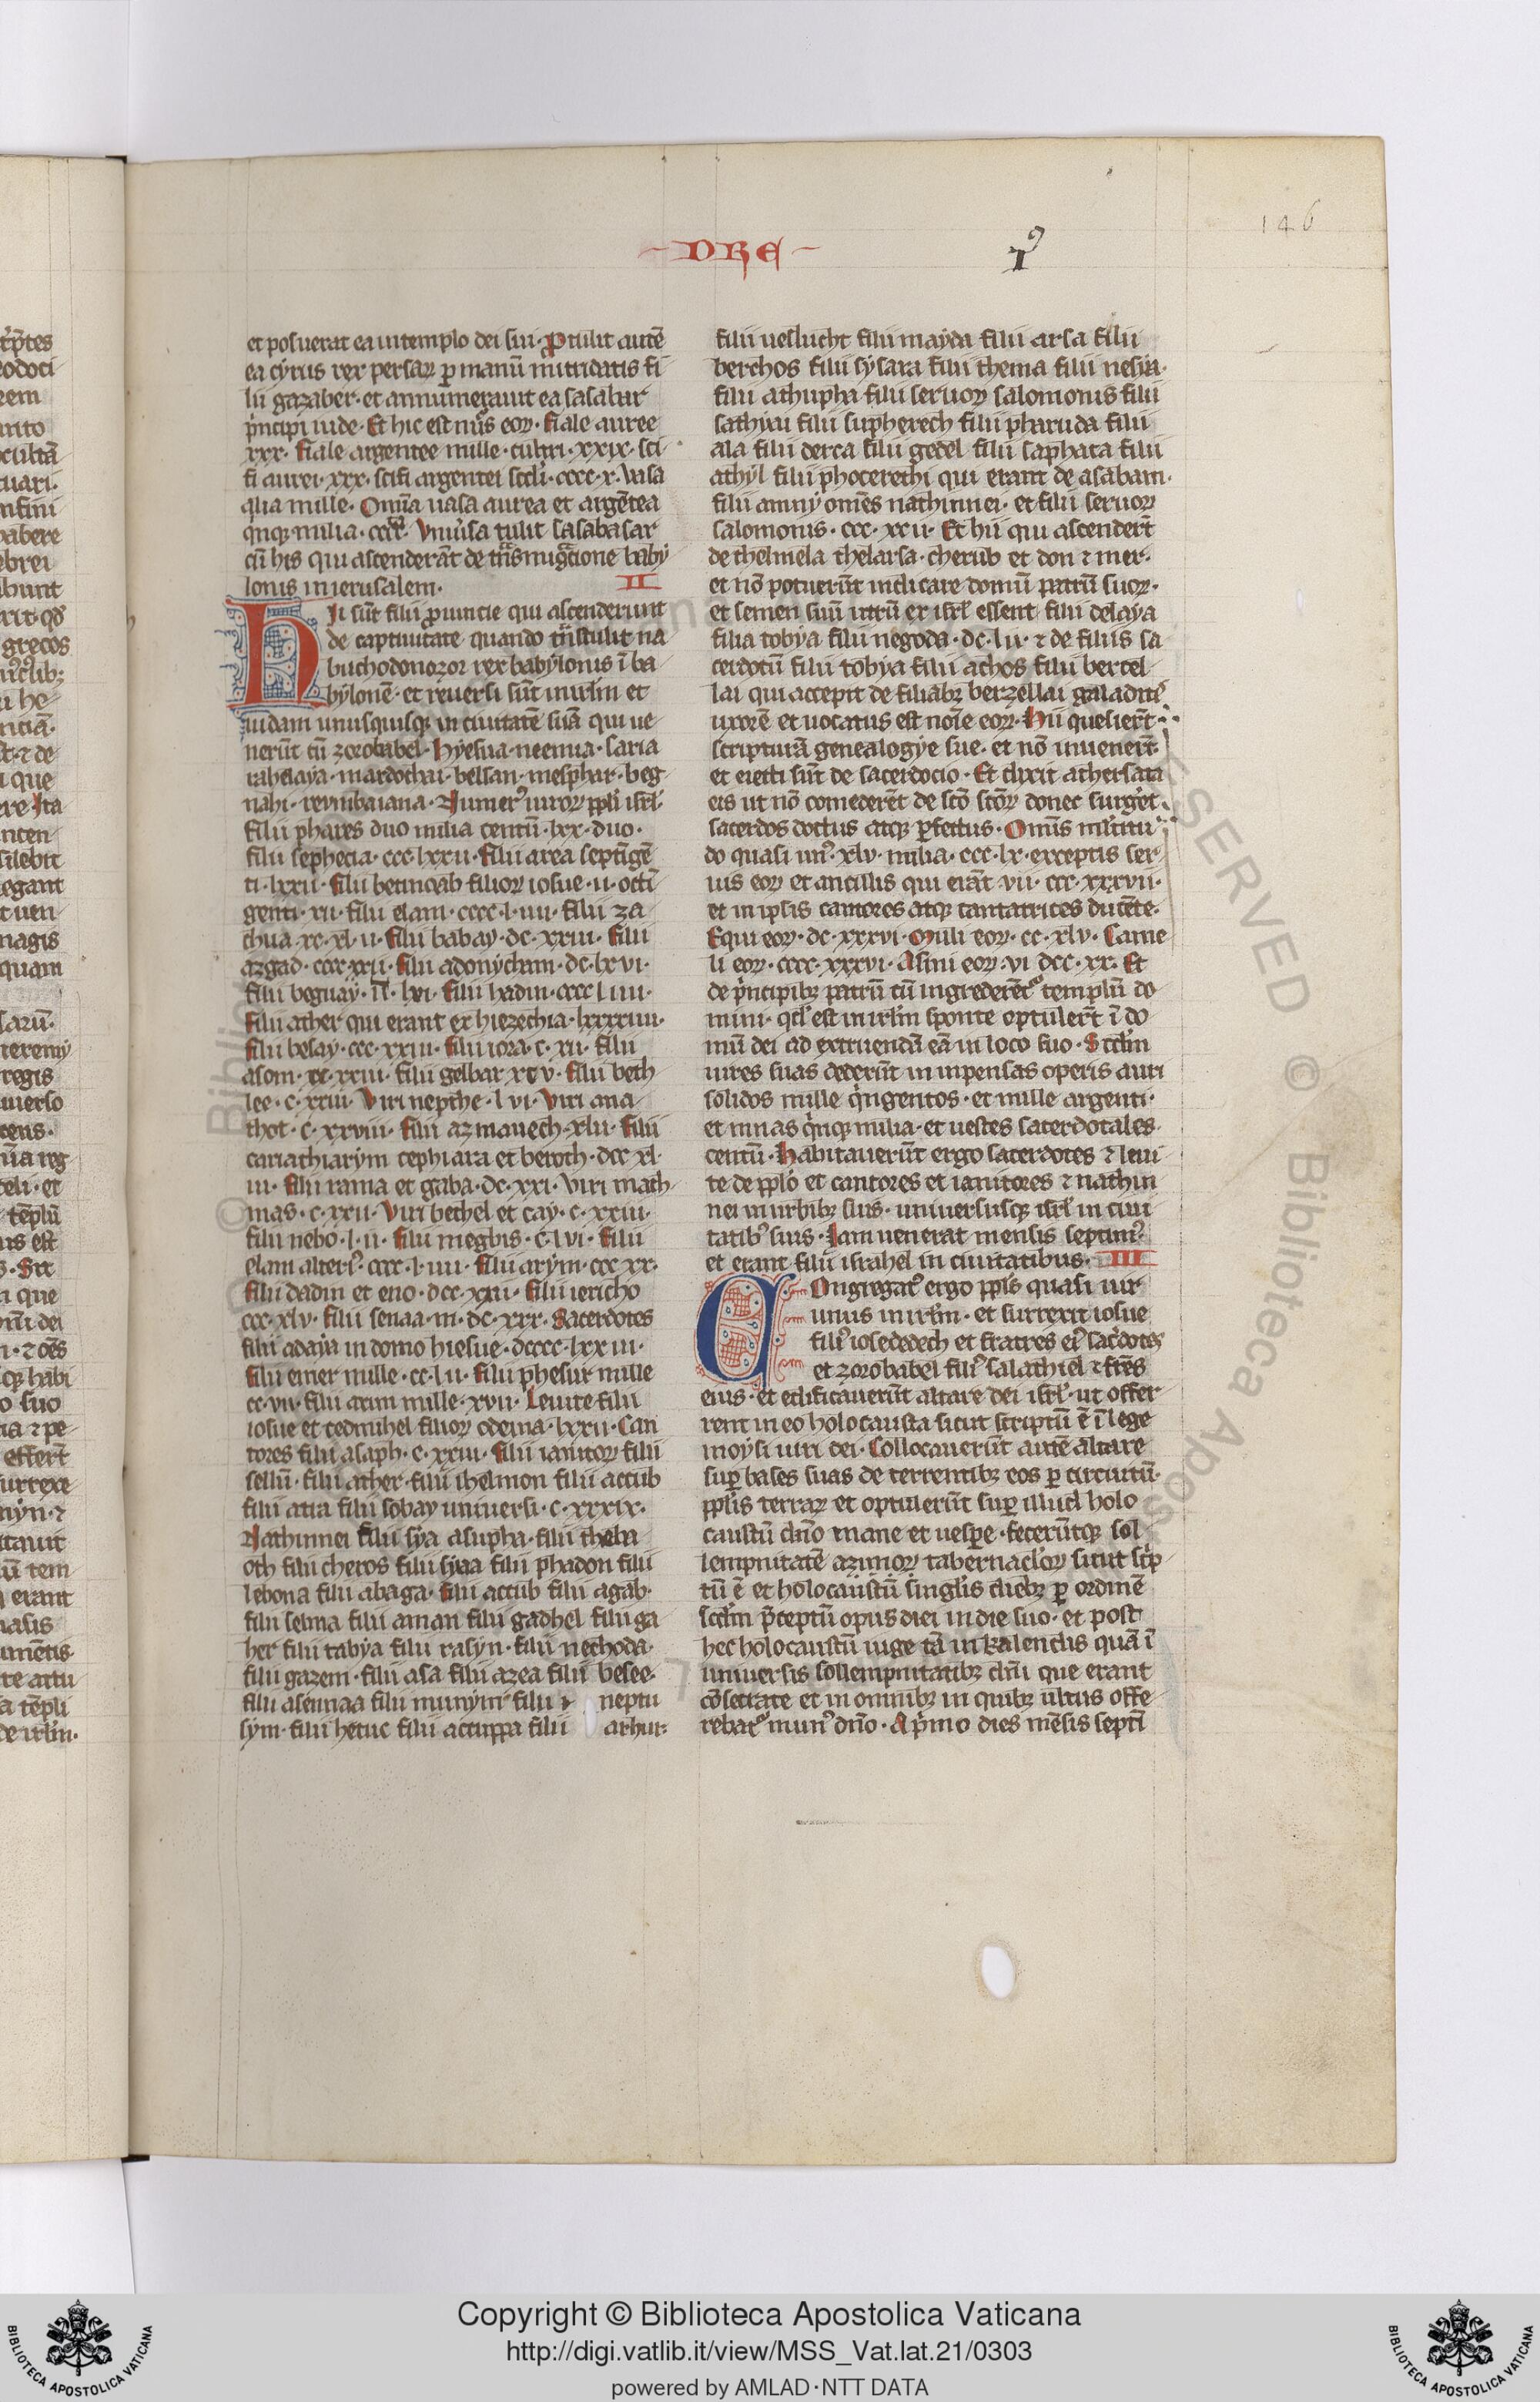 DRE
146
et posuerat ea in templo dei sui· Ptulit autē
ea cyrus rex persaꝝ p manū mitridatis fi
lii gazaber· et annumerauit ea sasabar
pncipi iude· Et hic est nūs eoꝝ· fiale auree
xxx· fiale argentee mille· cultri· xxix· sci
fi aurei· xxx· scifi argentei scdi· cccc· x· Vasa
alia mille· Omīa uasa aurea et argētea
qnqꝫ milia· cccc· Vniusa tulit sasabasar
cū his qui ascenderāt de tnsmigtione baby
lonis in ierusalem·
II
Hi sūt filii puincie qui ascenderunt
de captiuitate quando tnstulit na
buchodonozor rex babylonis ī ba
bylonē· et reuersi sūt in irlm et
iudam unusquisqꝫ in ciuitatē suā qui ue
nerūt cū zorobabel· hyesua· neemia· saria
rahelaya· mardochai· belsan· mesphar· beg
nahi· reumbaiana· Numer uiroꝝ ppli isrl·
filii phares duo milia centū· lxx· duo·
filii sephecia· ccc· lxxii· filii area septīgē
ti· lxxii· filii betmoab filioꝝ iosue· ii· octī
genti· xii· filii elam· cccc· l· iiii· filii za
chua· xc· xl· ii· filii babay· dc· xxiii· filii
azgad· cccc· xxii· filii adonycham· dc· lxvi·
filii beguay· ii· lvi· filii hadin· cccc l iiii·
filii ather qui erant ex hiezechia· lxxxxiiii·
filii besay· ccc· xxiii· filii iora· c· xii· filii
asom· cc· xxiii· filii gelbar xcv· filii beth
lee· c· xxiii· Viri nepthe· l vi· Viri ana
thot· c· xxviii· filii azmauech· xlii· filii
cariathiarym cephiara et beroth· dcc xl·
iii· filii rama et gaba· dc· xxi· Viri math
mas· c· xxii· Viri bethel et cay· c· xxiii·
filii nebo· l· ii· filii megbis· c· l vi· filii
elam alteri· ccc· l· iiii· filii arym· ccc xx·
filii dadin et eno· dcc· xxii· filii iericho
ccc· xlv· filii senaa· iii· dc· xxx· Sacerdotes
filii adaya in domo hiesue· dcccc· lxxiii·
filii emer mille· cc· l ii· filii phesur mille
cc· vii· filii arim mille· xvii· Leuite filii
iosue et cedmihel filioꝝ odema· lxxii· Can
tores filii asaph· c· xxiii· filii ianitoꝝ filii
sellū· filii ather· filii thelmon filii accub
filii atia filii sobay uniuersi· c· xxxix·
Nathinnei filii sya asupha· filii theba
oth filii cheros filii syaa filii phadon filii
lebona filii abaga· filii accub filii agab·
filii selma filii aman filii gadhel filii ga
her filii tabya filii rasyn· filii nechoda·
filii gazem· filii asa filii azea filii besee·
filii asennaa filii munym filii neptu
sym· filii hetuc filii acuppa filii arhur·
filii uesluicht filii mayda filii arsa filii
berchos filii sysara filii thema filii nesya·
filii athupha filii seruoꝝ salomonis filii
sathyiu filii supherech filii pharuda filii
ala filii derca filii gedel filii saphata filii
athyl filii phocerethi qui erant de asabam·
filii ammy omēs nathinnei· et filii seruoꝝ
salomonis· ccc· xcii· Et hii qui ascenderūt
de thelmela thelarsa· cherub et don ⁊ mer·
et nō potuerūt indicare domū patrū suoꝝ·
et semen suū utrū ex isrl essent filii delaya
filia tobya filii negoda· dc· l ii· ⁊ de filiis sa
cerdotū filii tobya filii achos filii bercel
lai qui accepit de filiabꝫ berzellai galaditē
uxorē et uocatus est noīe eoꝝ· Hii quesierūt
scripturā genealogye sue· et nō inuenerūt·
et eiecti sūt de sacerdocio· Et dixit athersata
eis ut nō comederēt de scō scōꝝ donec surget
sacerdos doctus atqꝫ pfectus· Omīs mltitu
do quasi un xlv· milia· ccc· lx· exceptis ser
uis eoꝝ et ancillis qui erāt· vii· ccc· xxxvii·
et in ipsis cantores atqꝫ cantatrices ducēte·
Equi eoꝝ· dc· xxxvi· Muli eoꝝ· cc· xlv· Came
li eoꝝ· cccc· xxxvi· Asini eoꝝ· vi dcc· xx· Et
de pncipibꝫ patrū cū ingrederēt templū do
mini· qd est in irlm sponte optulert ī do
mū dei ad extruendū eā in loco suo· Scdm
uires suas dederūt in inpensas operis auri
solidos mille qngentos· et mille argenti·
et mnas qnqꝫ milia· et uestes sacerdotales·
centū· Habitauerūt ergo sacerdotes ⁊ leui
te de pplo et cantores et ianitores ⁊ nathin
nei in urbibꝫ suis· uniuersusqꝫ isrl in ciui
tatib suis· Iam uenerat mensis septim
et erant filii israhel in ciuitatibus· III
Congregat ergo ppls quasi uir
unus in irlm· et surrexit iosue
fili iosededech et fratres ei sacdotes
et zorobabel fili salathiel ⁊ frēs
eius· et edificauerūt altare dei isrl· ut offer
rent in eo holocausta sicut scriptū ē ī lege
moysi uiri dei· Collocauerūt autē altare
sup bases suas de terrentibꝫ eos p circuitū·
pplis terraꝝ et optulerūt sup illud holo
caustū dno mane et uespe· fecerūtqꝫ sol
lempnitatē azimoꝝ tabernacloꝝ sicut scip
tū ē et holocaustū singlis diebꝫ p ordinē
scdm pceptū opus diei in die suo· et post
hec holocaustū iuge tā in kalendis quā ī
uniuersis sollempnitatibꝫ dni que erant
cōsecrate et in omnibꝫ in quibꝫ ultus offe
rebat mun dno· A pmo dies mēsis septī
Copyright © Biblioteca Apostolica Vaticana
http://digi.vatlib.it/view/MSS_Vat.lat.21/0303
powered by AMLAD·NTT DATA